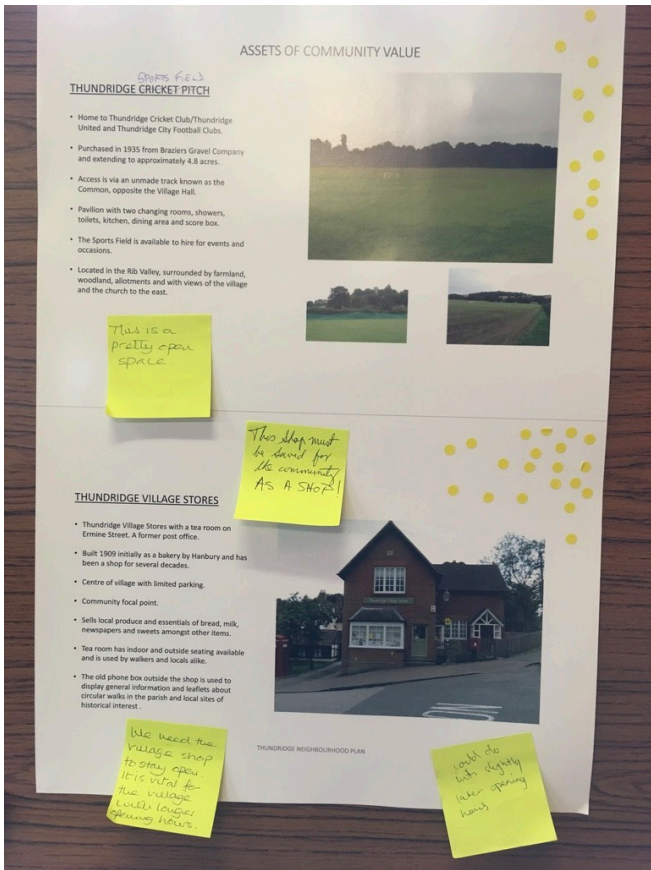 ASSETS OF COMMUNITY VALUE
SPORTS FIELD
THUNDRIDGE CRICKET PITCH
• Home to Thundridge Cricket Club/Thundridge
United and Thundridge City Football Clubs.
• Purchased in 1935 from Braziers Gravel Company
and extending to approximately 4.8 acres.
• Access is via an unmade track known as the
Common, opposite the Village Hall.
• Pavilion with two changing rooms, showers,
toilets, kitchen, dining area and score box.
• The Sports Field is available to hire for events and
occasions.
• Located in the Rib Valley, surrounded by farmland,
woodland, allotments and with views of the village
and the church to the east.
This is a
pretty open
space.
This shop must
be saved for
the community
AS A SHOP!
THUNDRIDGE VILLAGE STORES
• Thundridge Village Stores with a tea room on
Ermine Street. A former post office.
• Built 1909 initially as a bakery by Hanbury and has
been a shop for several decades.
• Centre of village with limited parking.
• Community focal point.
• Sells local produce and essentials of bread, milk,
newspapers and sweets amongst other items.
• Tea room has indoor and outside seating available
and is used by walkers and locals alike.
• The old phone box outside the shop is used to
display general information and leaflets about
circular walks in the parish and local sites of
historical interest.
THUNDRIDGE NEIGHBOURHOOD PLAN
We need the
village shop
to stay open.
It is vital for
the village
with longer
opening hours.
could do
with slightly
later opening
hours